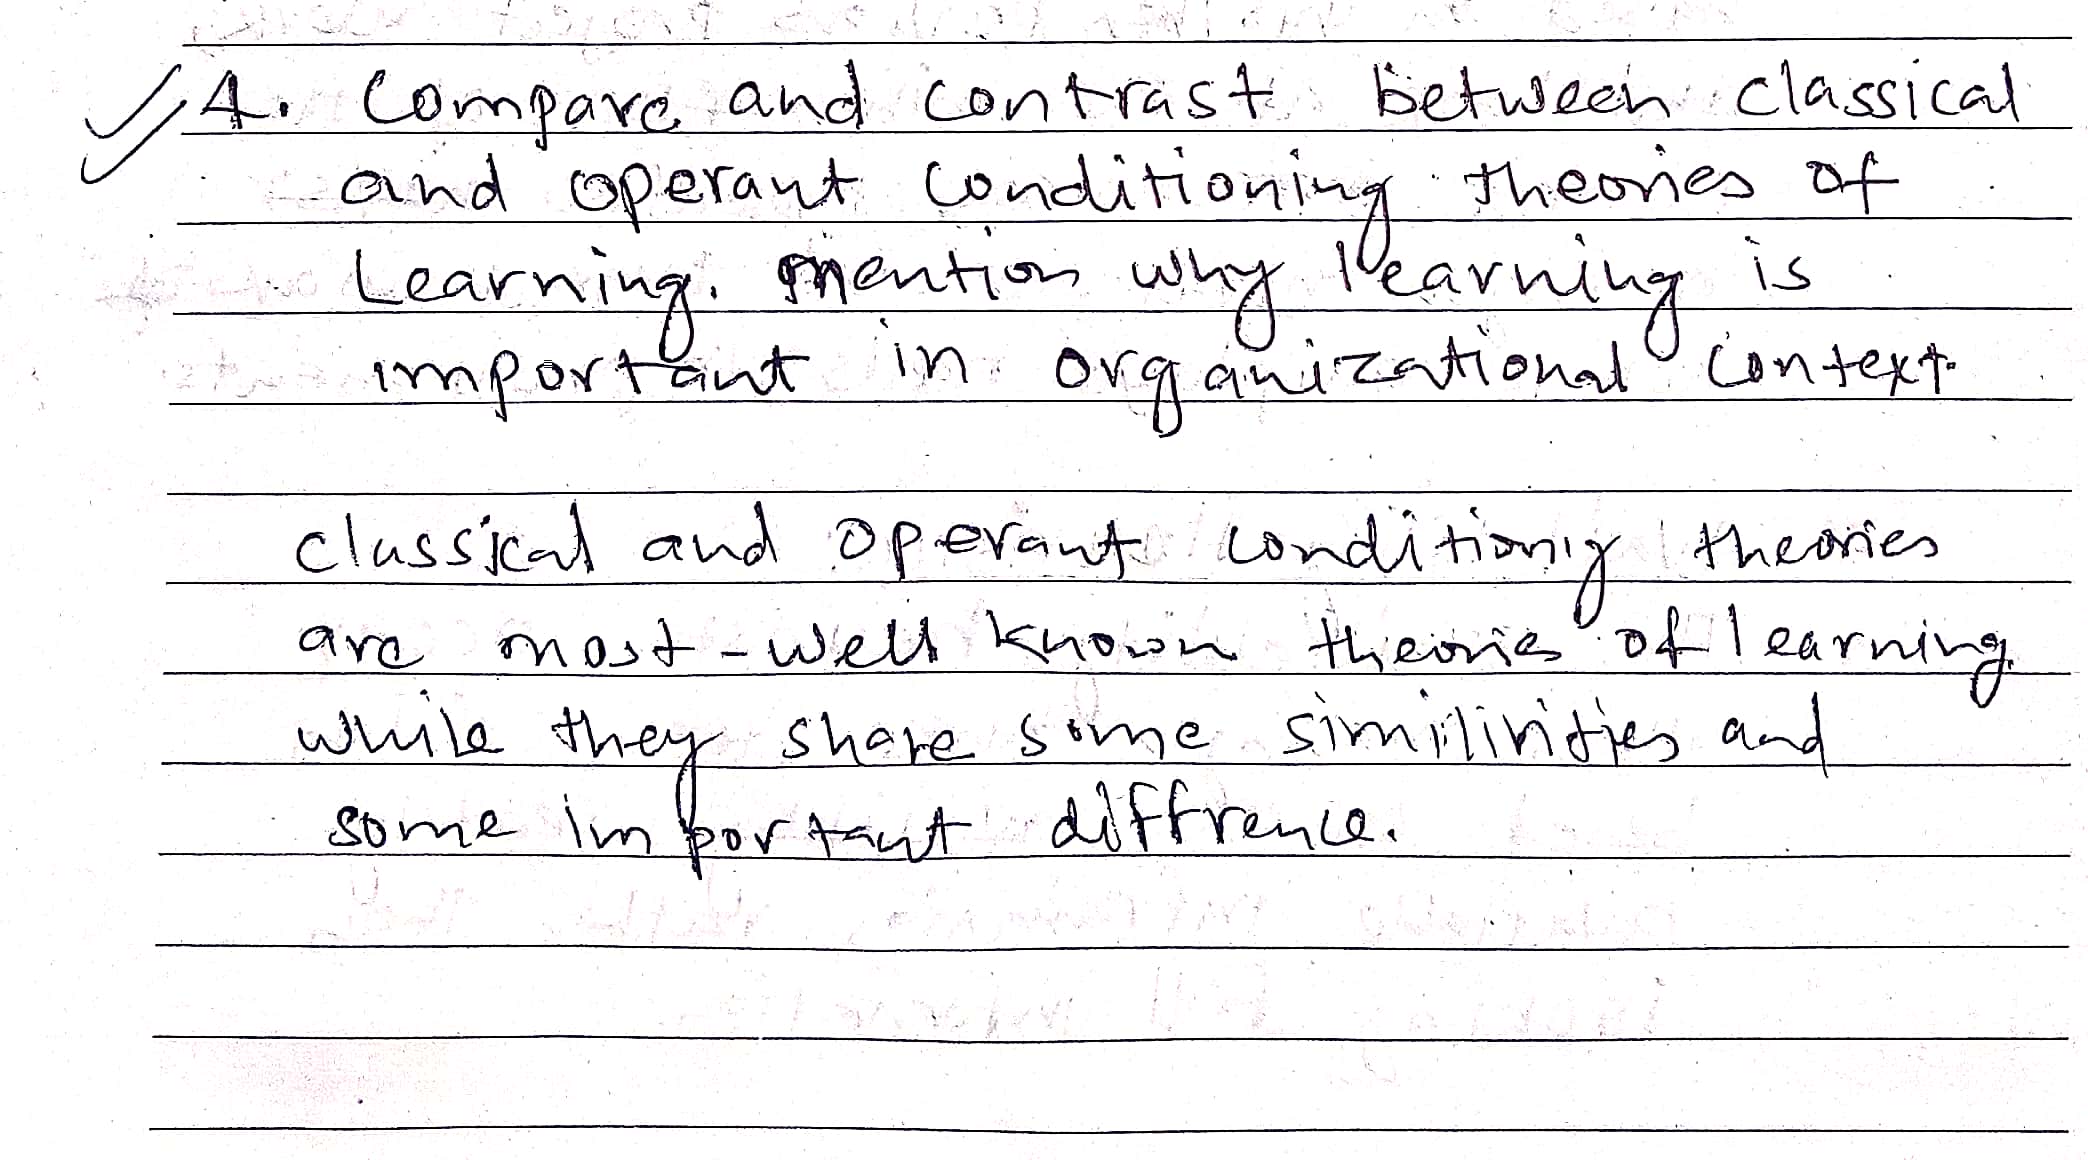 4. Compare and contrast between classical
and operant conditioning theories of
Learning. mention why learning is
important in organizational context.
classical and operant conditionig theories
are most-well known theories of learning.
while they share some similirities and
some important diffrence.